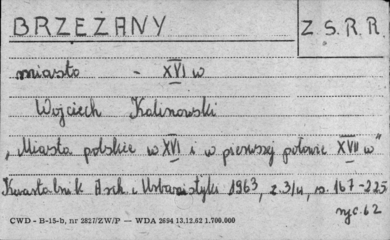 BRZEŻANY
Z.S.R.R.
miasto - XVI w
Wojciech Kalinowski
„Miasta polskie w XVI i w pierwszej połowie XVII w"
Kwartalnik Arch. i Urbanistyki 1963, z. 3/4, s. 167-225
ryc. 62
CWD - B-15-b, nr 2827/ZW/P — WDA 2694 13.12.62 1.700.000